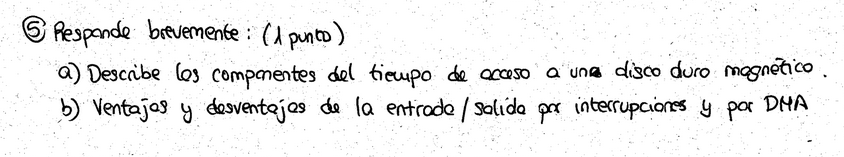 ⑤ Responde brevemente: (1 punto)
a) Describe los componentes del tiempo de acceso a una disco duro magnético.
b) Ventajas y desventajas de la entrada/salida por interrupciones y por DMA